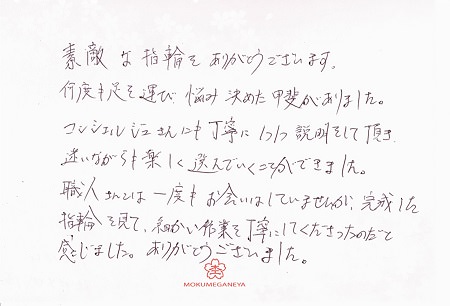 素敵な指輪をありがとうございます。
何度も足を運び悩み決めた甲斐がありました。
コンシェルジュさんにも丁寧に1つ1つ説明をして頂き
迷いながらも楽しく選んでいくことができました。
職人さんとは一度もお会いはしていませんが、完成した
指輪を見て、細かい作業を丁寧にしてくださったのだと
感じました。ありがとうございました。
MOKUMEGANEYA